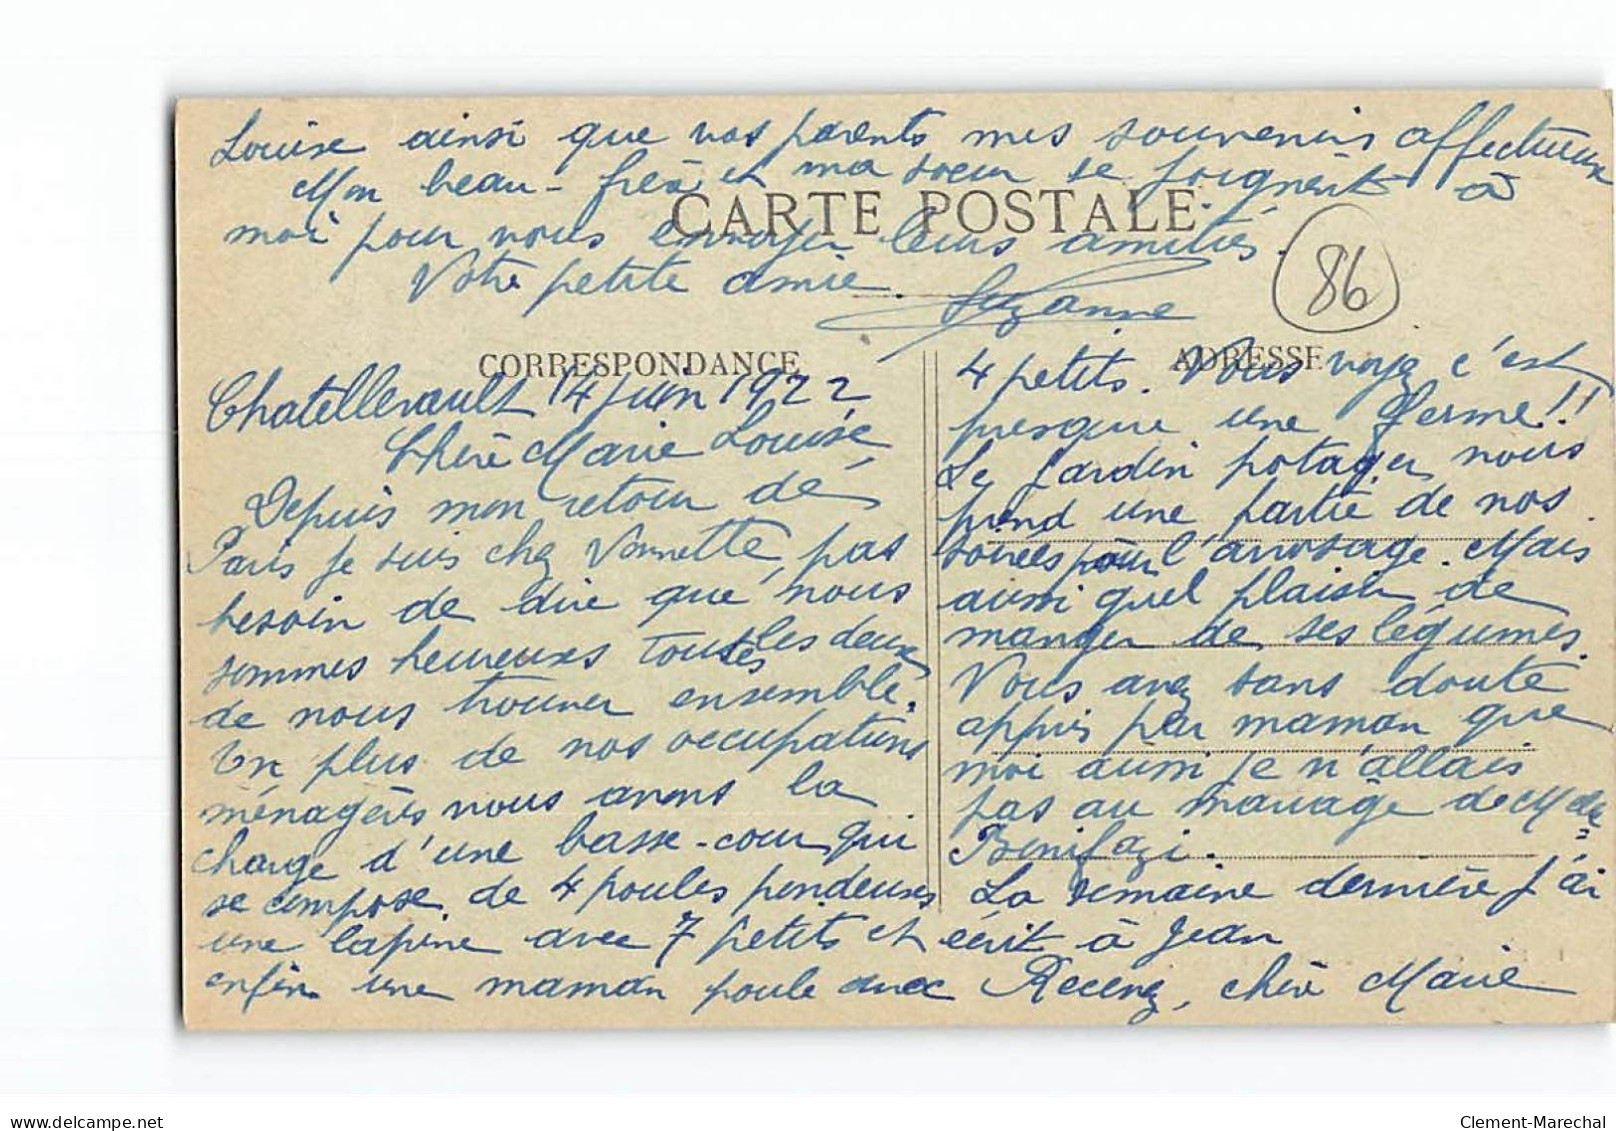 Louise ainsi que vos parents mes souvenirs affectueux
Mon beau-frère et ma soeur se joignent à
CARTE POSTALE
moi pour vous envoyer leurs amitiés.
Votre petite amie
Suzanne
86
CORRESPONDANCE
Chatellerault 14 juin 1922
Chère Marie Louise,
Depuis mon retour de
Paris je suis chez Vonnette, pas
besoin de dire que nous
sommes heureuses toutes les deux
de nous trouver ensemble.
En plus de nos occupations
ménagères nous avons la
charge d'une basse-cour qui
se compose de 4 poules pondeuses
une lapine avec 7 petits et
enfin une maman poule avec
ADRESSE
4 petits. Vous voyez c'est
presque une ferme!!
Le jardin potager nous
prend une partie de nos
soirées pour l'arrosage. Mais
aussi quel plaisir de
manger de ses légumes.
Vous avez sans doute
appris par maman que
moi aussi je n'allais
pas au mariage de Melle
Bonifazi.
La semaine dernière j'ai
écrit à Jean
Recevez, chère Marie
delcampe.net
Clement-Marechal